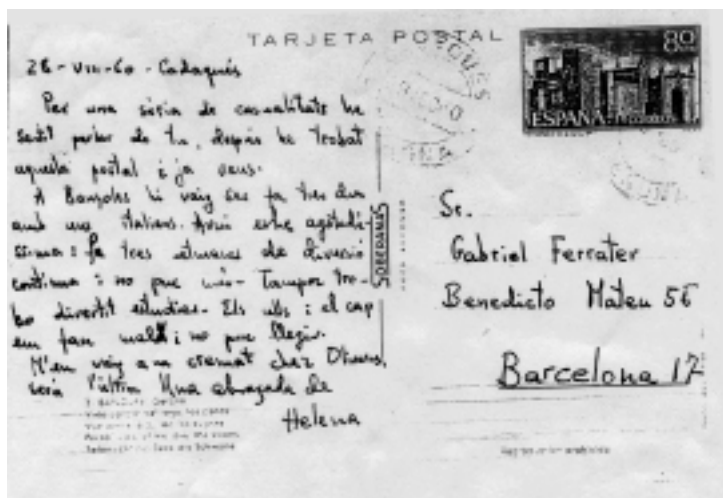 TARJETA POSTAL
26-VIII-60 - Cadaqués
Per una sèria de casualitats he
sentit parlar de tu, després he trobat
aquesta postal i ja veus.
A Banyoles hi vaig ser fa tres dies
amb uns italians. Avui estic
fa tres setmanes de diversió
contínua i no puc més. Tampoc tro-
bo divertit estudiar. Els ulls i el cap
em fan mal i no puc llegir.
M'en vaig a un cremat chez
serà l'últim Una abraçada de
Helena
SOBERANAS
80
ESPAÑA
CORREOS
Sr.
Gabriel Ferrater
Benedicto Mateu 56
Barcelona 17